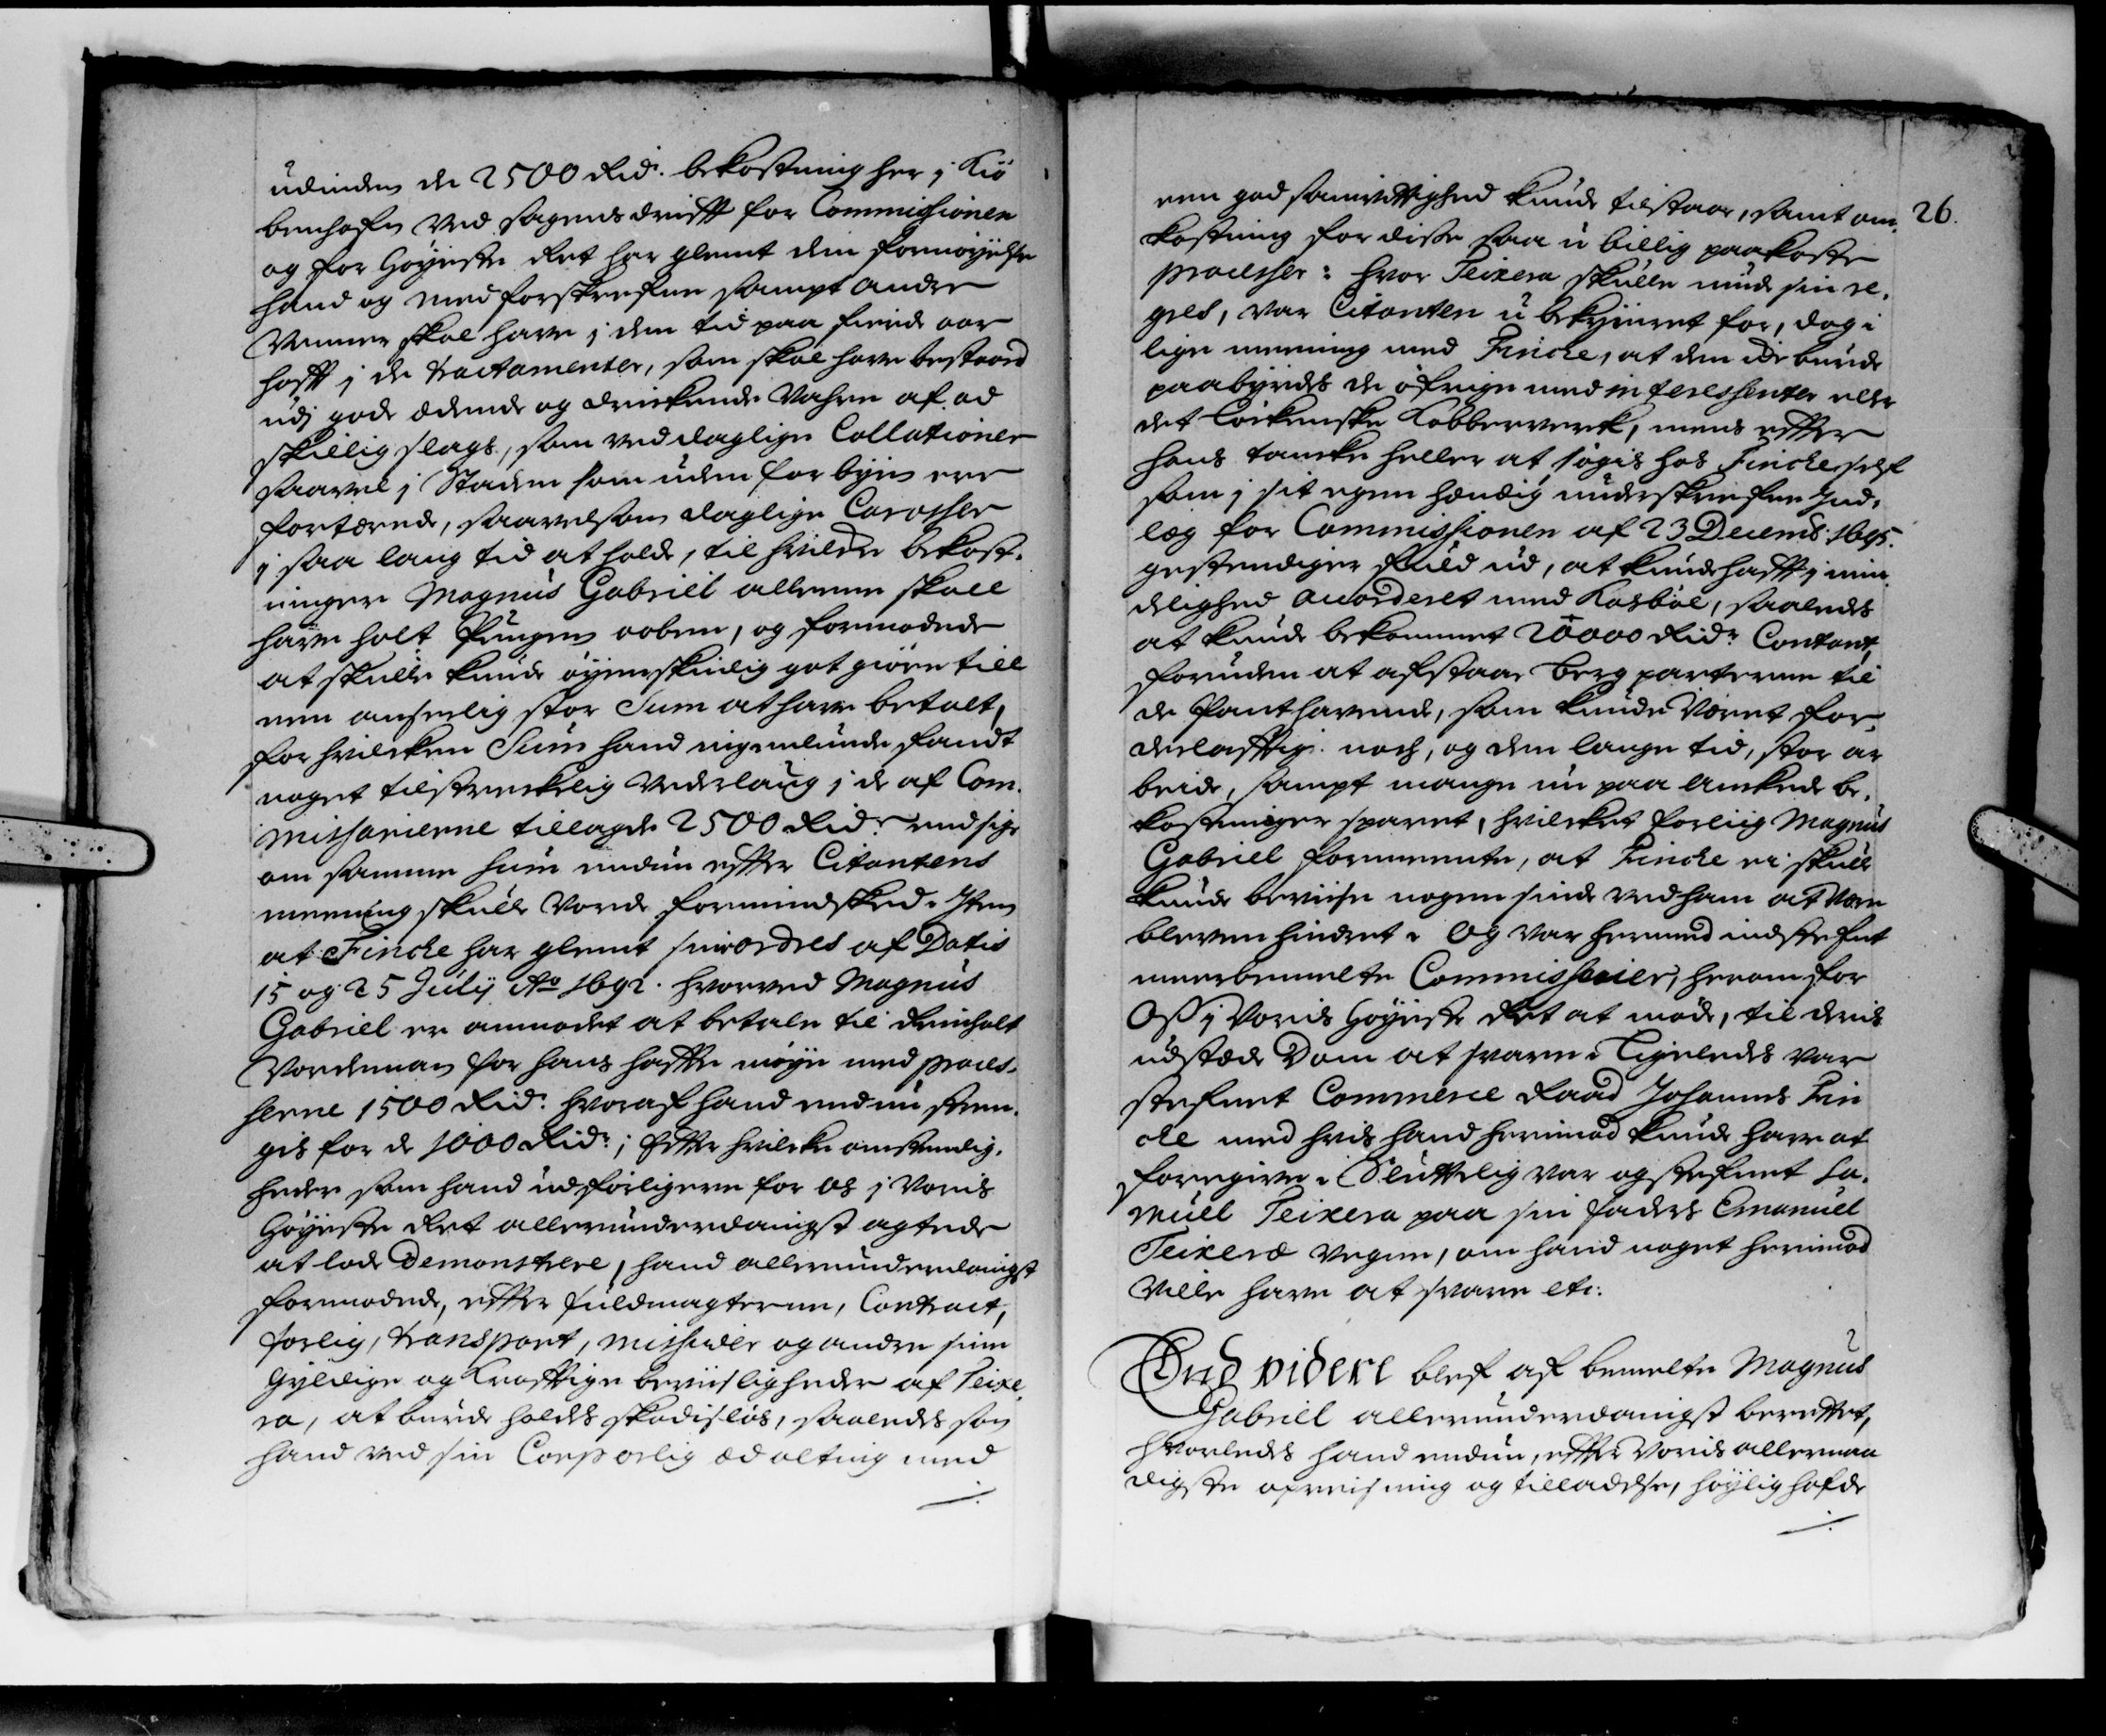 udinden de 2500 Rid: bekostning her j Kiö
benhafn ved sagens drifft for Commissionen
og for Høyeste Ret har glemt den fornøyelse
hand og med forskrefne sampt andre
Venner skal have j den tid paa fierde aar
hafft j de tractamenter, som skal have bestaaed
udj gode ædende og drickende Vahre af ad
skillig slags, som ved daglige Collationer
saavel j Staden som uden for byen ere
fortærede, saavelsom daglige Carosser
j saa lang tid at holde, til hvilcke bekost-
ninger Magnus Gabriel alleene skall
have holt Pungen aaben, og formodede
at skulle kunde øyenskinlig got giøre till
een anseelig stor Sum at have betalt,
for hvilcken Sum hand ingenlunde fandt
noget tilstreckelig Vederlaug j de af Com-
missarierne tillagde 2500 Rid:r endsige
om samme Sum endnu effter Citantens
meening skulle vorde formindsked. Item
at Fincke har glemt sin ordres af Datis
15 og 25 Julij Ao 1692. hvorved Magnus
Gabriel er anmodet at betale til Reinholt
Vordeman for hans haffte møye med proces-
serne 1500 Rid: hvoraf hand endnu tren-
gis for de 1000 Rid:; Effter hvilcke omstendig-
heder som hand udførligere for os j Voris
Høyeste Ret allerunderdanigst agtede
at lade Demonstrere, hand allerunderdanigst
formodede, effter fuldmagterne, Contract,
forlig, transport, missiver og andre sine
gyldige og krafftige beviisligheder af Teixe-
ra, at burde holdes skadisløs, saaledes som
hand ved sin Corporlig æd alting med
./.
een god samvittighed kunde tilstaae, samt om- 26.
kostning for disse saa u billig paakoste
processer: hvor Teixera skulle finde sin re-
gres, var Citanten u bekymret for, dog i
lige meening med Fincke, at den icke burde
paabyrdes de øfrige med interessenter eller
det Løckenske Kobberverck, mens effter
hans tancke heller at søgis hos Fincke self
som j sit egen hændig underskrefne Ind-
læg for Commissionen af 23 Decemb: 1695.
gestendiger fuld ud, at kunde hafft j min-
delighed accorderet med Kasböl, saaledes
at kunde bekommet 20000 Rid:r Contant,
foruden at afstaae Berg parterne til
de Panthavende, som kunde Været for-
deelacktig nock, og den lange tid, stor ar
beide, sampt mange nu paa anckede be-
kostninger sparet, hvilcket forliig Magnus
Gabriel formeente, at Fincke ei skulle
kunde bevise nogen sinde ved ham at Være
bleven hindret. Og var hermed indstefnet
meerbemelte Commissarier, herom for
Oss j Voris Høyeste Ret at møde, til deris
udstæde Dom at svare. Ligeledes var
stefnet Commerce Raad Johannes Fin
cke med hvis hand herimod kunde have at
foregive. Sluttelig var og stefnet Sa-
muel Teixera paa sin Faders Emanuel
Teixeræ Vegne, om hand noget herimod
Ville have at svare etc:
End videre blef af bemelte Magnus
Gabriel allerunderdanigst berettet,
hvorledes hand endnu, effter Voris allernaa
digste opreisning og tilladelse, høylig hafde
./.